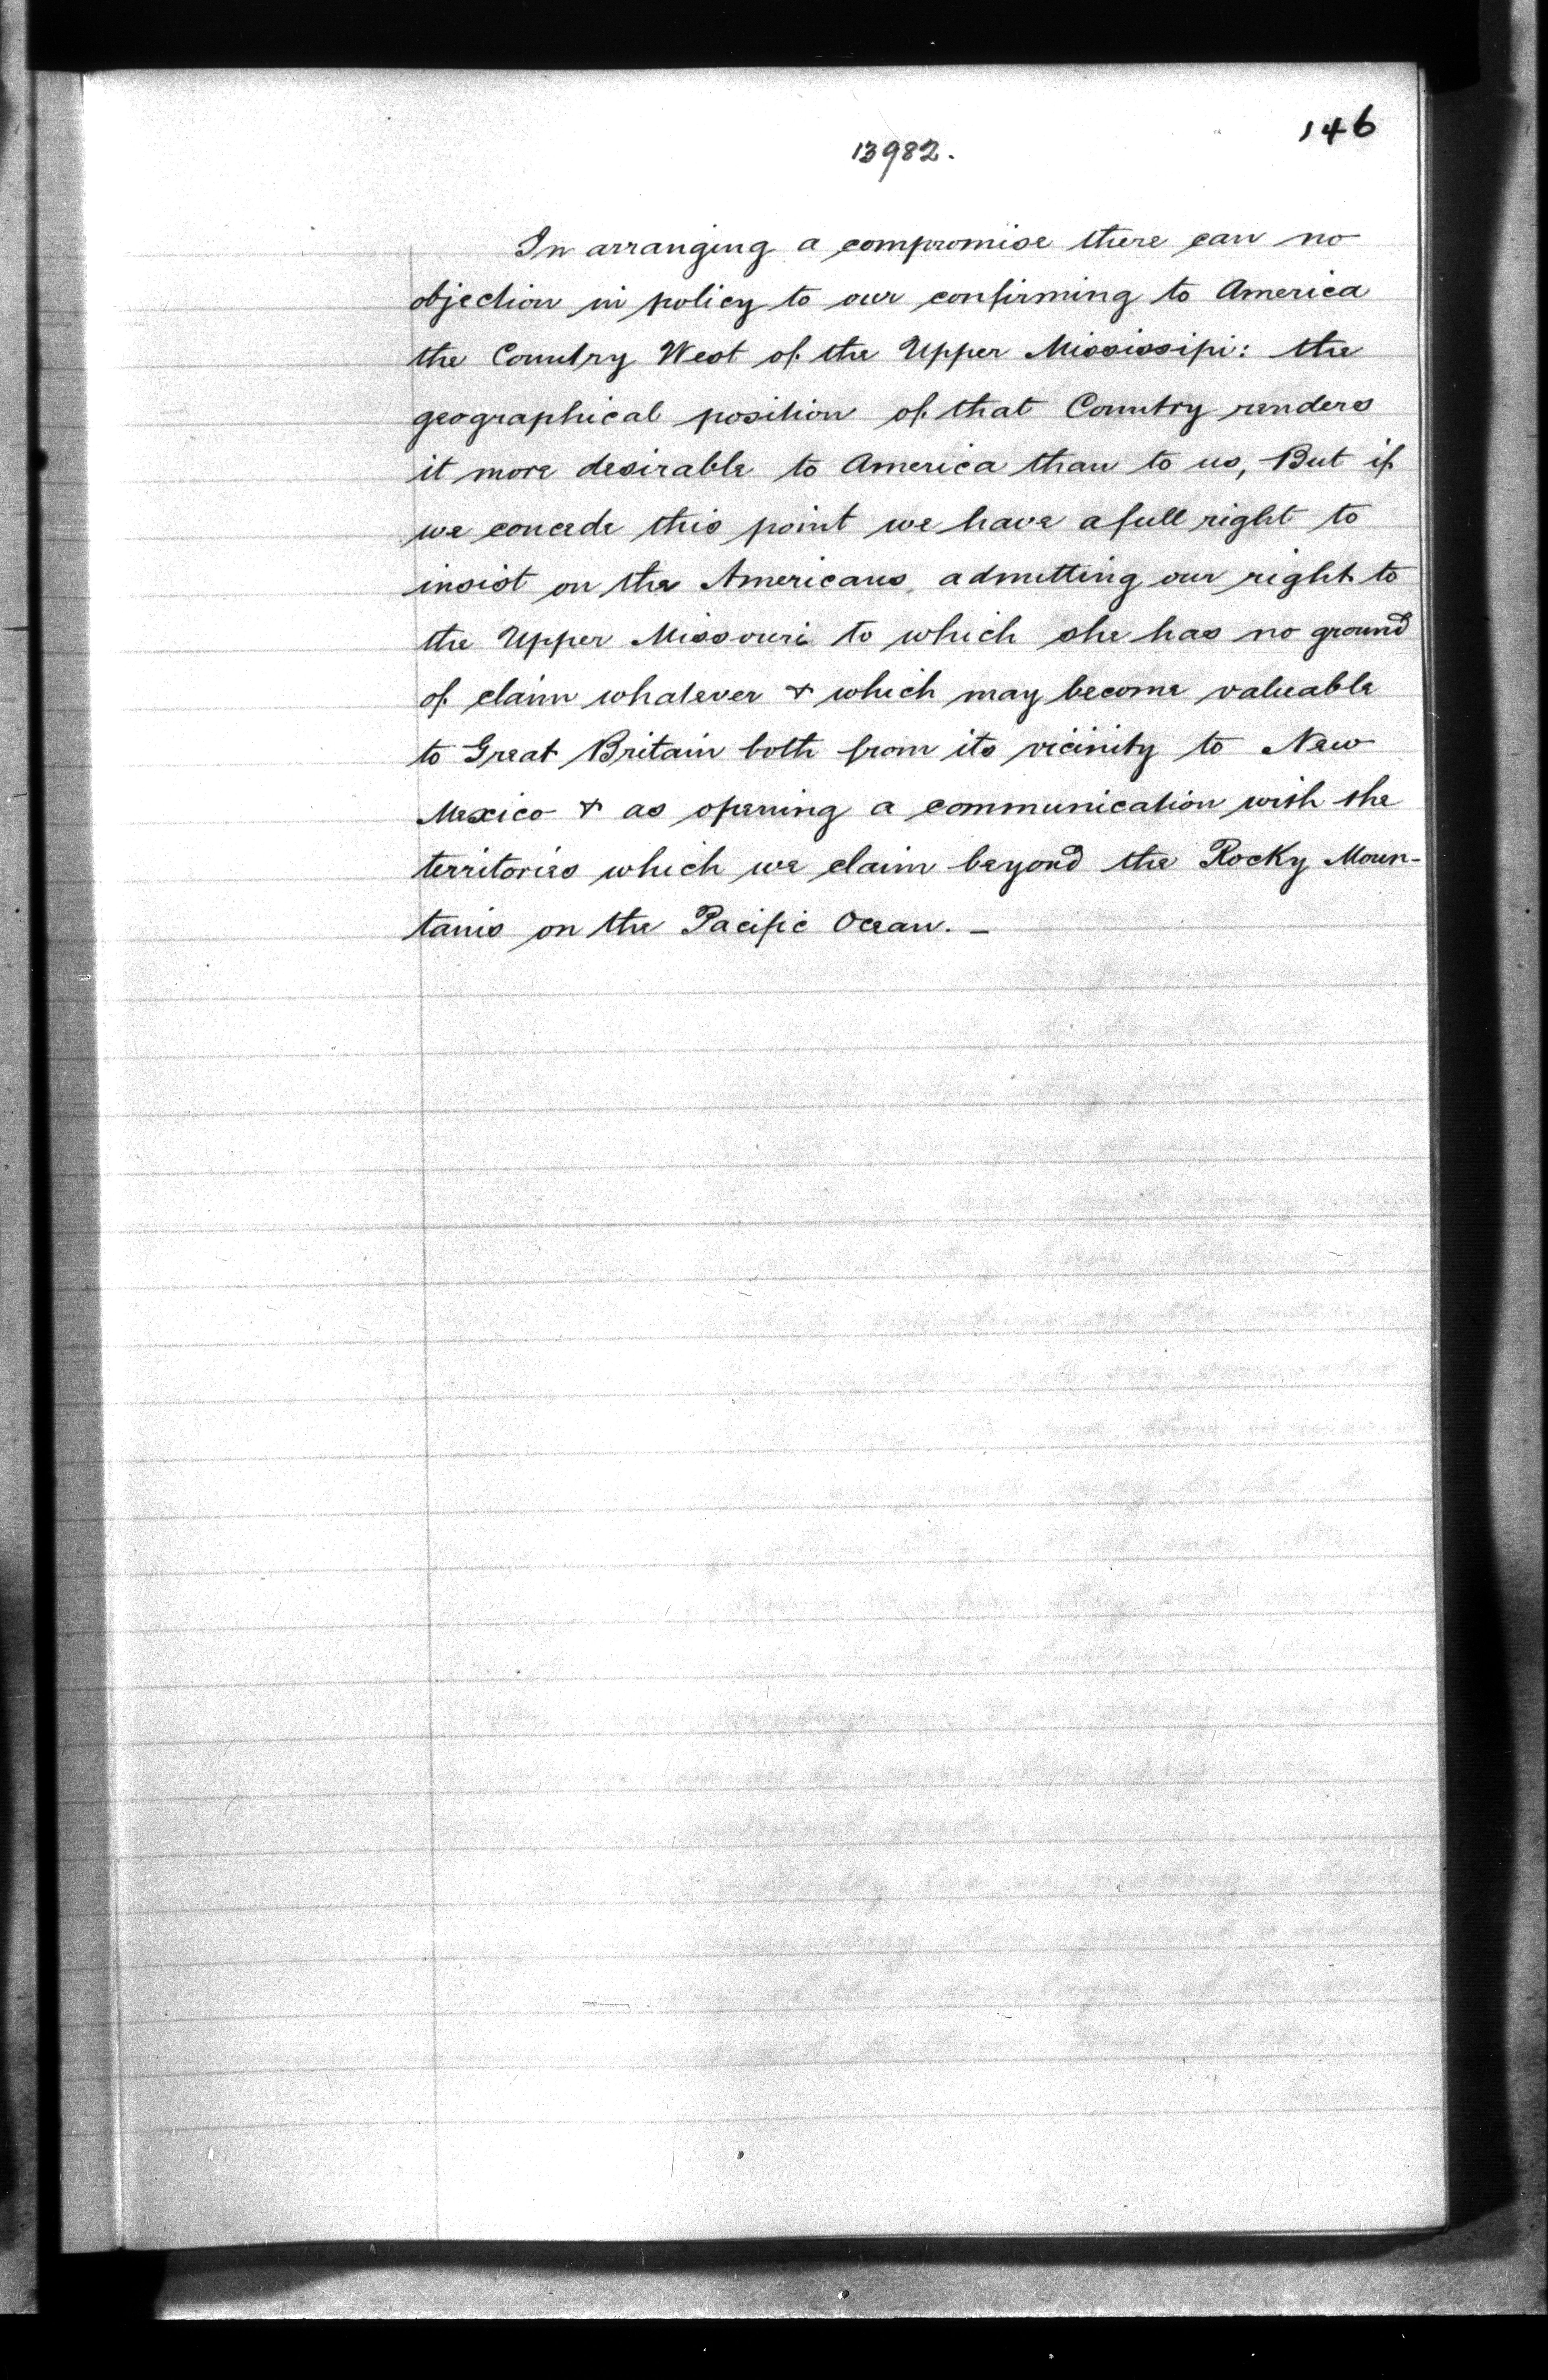 146
13982.
In arranging a compromise there can no
objection in policy to our confirming to America
the Country West of the Upper Mississipi: the
geographical position of that Country renders
it more desirable to America than to us, But if
we concede this point we have a full right to
insist on the Americans, admitting our right to
the Upper Missouri to which she has no ground
of claim whatever & which may become valuable
to Great Britain both from its vicinity to New
Mexico & as opening a communication with the
territories which we claim beyond the Rocky Moun-
tains on the Pacific Ocean. _